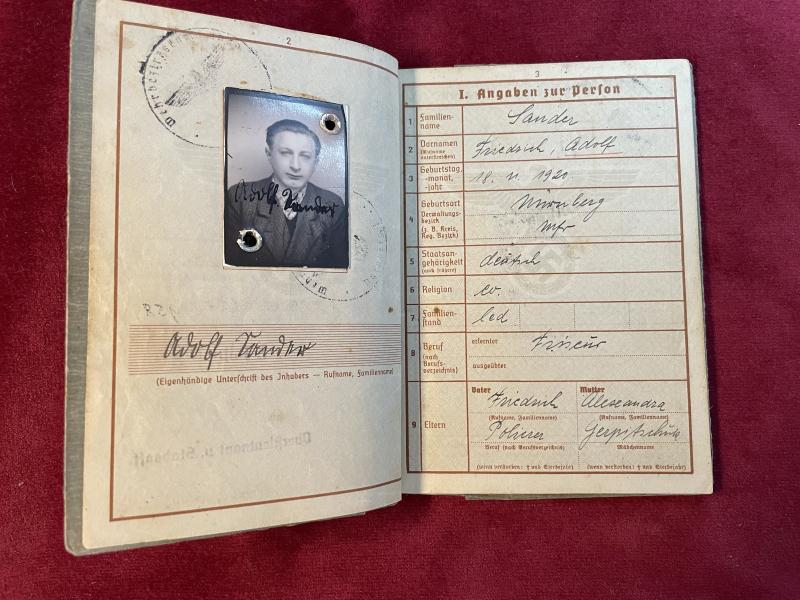 2
Adolf Sander
Adolf Sander
(Eigenhändige Unterschrift des Inhabers — Rufname, Familienname)
Oberstleutnant u.
3
I. Angaben zur Person
1 Familien-
name
Sander
2 Vornamen
(Rufname
unterstreichen)
Friedrich, Adolf
3 Geburtstag,
-monat,
-jahr
18. 11. 1920.
4 Geburtsort
Verwaltungs-
bezirk
(z. B. Kreis,
Reg. Bezirk)
Nürnberg
Mfr
5 Staatsan-
gehörigkeit
(auch frühere)
deutsch
6 Religion
ev.
7 Familien-
stand
led
8 Beruf
(nach
Berufs-
verzeichnis)
erlernter
Friseur
ausgeübter
9 Eltern
Vater Mutter
Friedrich Alexandra
(Rufname, Familienname) (Rufname, Familienname)
Polierer
Beruf (nach Berufsverzeichnis) Mädchenname
(wenn verstorben: † und Sterbejahr) (wenn verstorben: † und Sterbejahr)